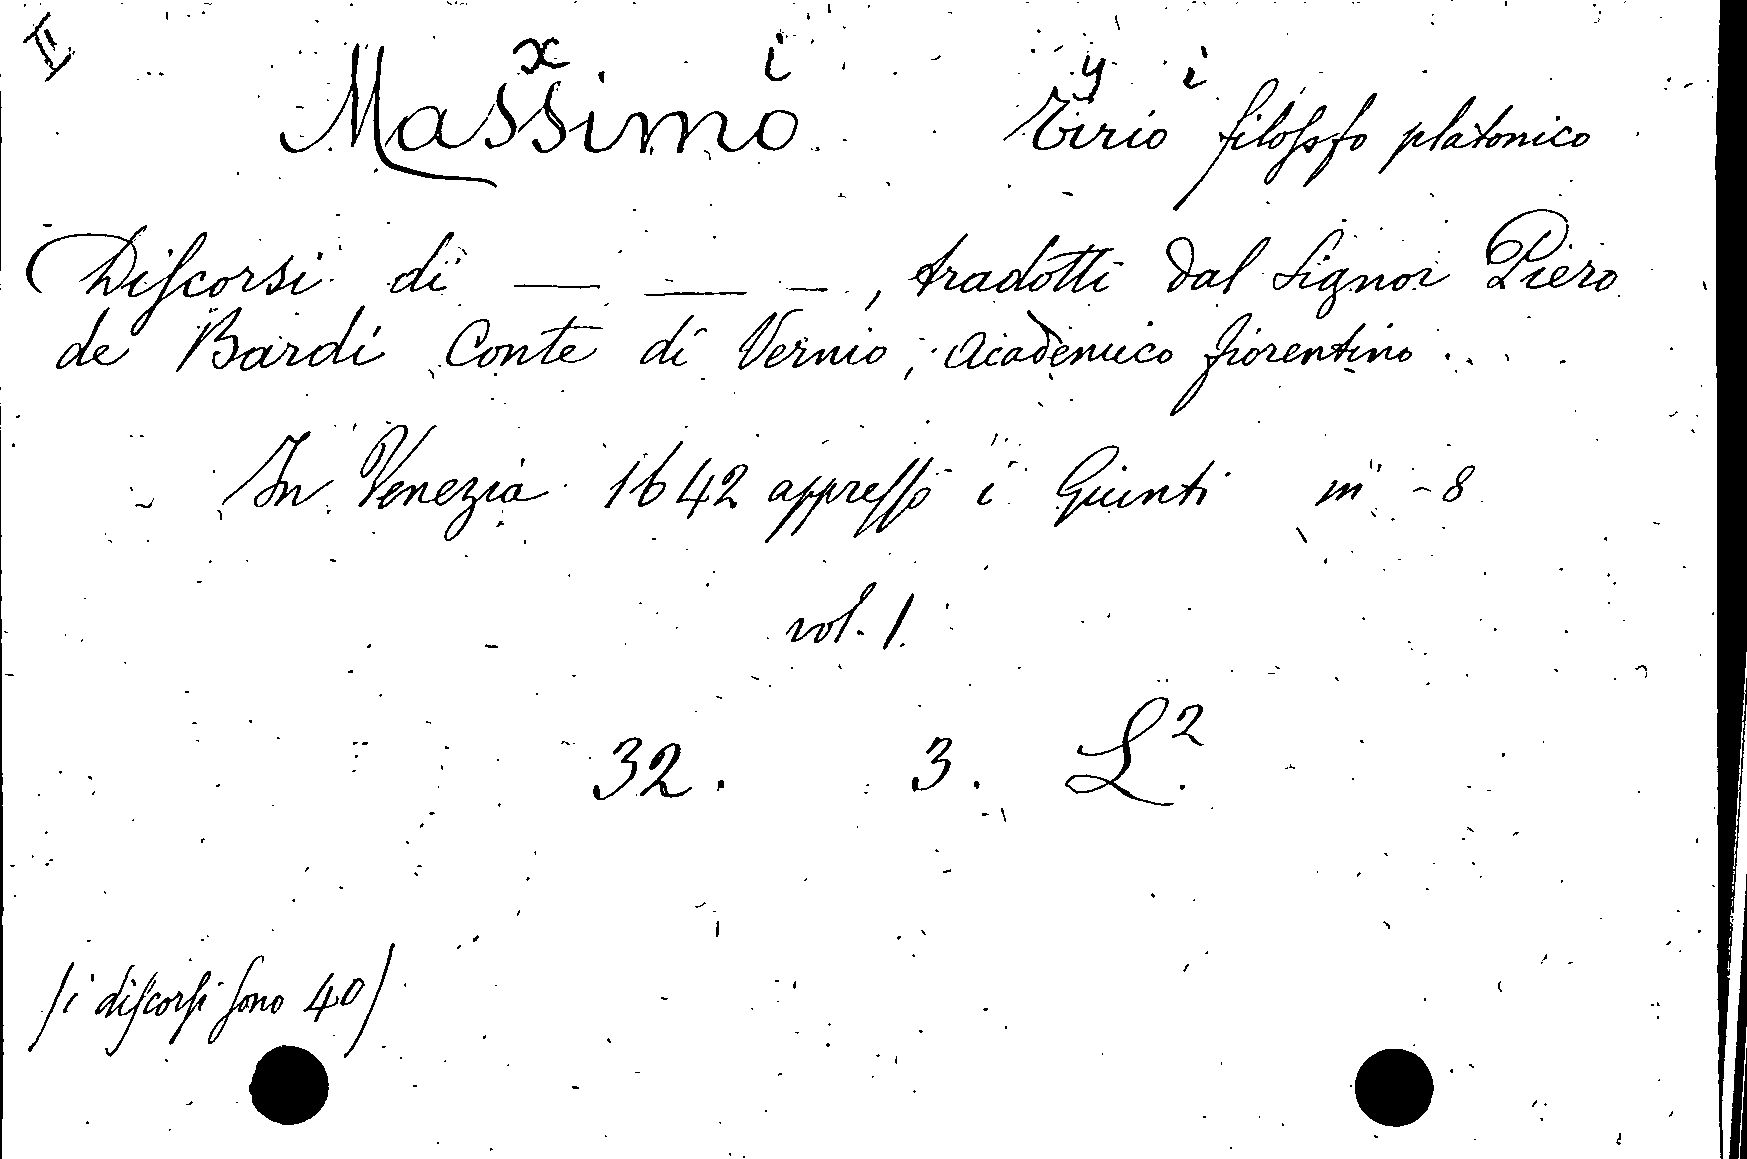 II
x i y i
Massimo Tirio filosofo platonico
Discorsi di — — —, tradotti dal Signor Piero
de Bardi Conte di Vernio, Academico fiorentino . . .
In Venezia 1642 appresso i Giunti in - 8
vol. 1.
32. 3. L.²
/i discorsi sono 40/